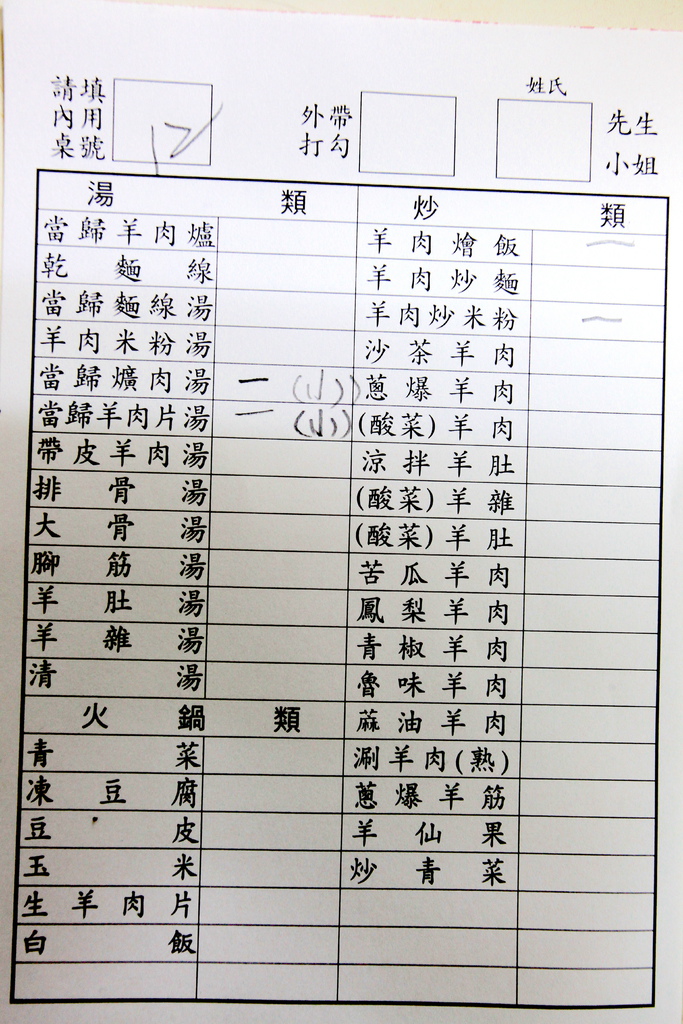 請填
內用
桌號
12
外帶
打勾
姓氏
先生
小姐
湯類
當歸羊肉爐
乾麵線
當歸麵線湯
羊肉米粉湯
當歸爌肉湯 一 (小)
當歸羊肉片湯 一 (小)
帶皮羊肉湯
排骨湯
大骨湯
腳筋湯
羊肚湯
羊雜湯
清湯
火鍋類
青菜
凍豆腐
豆皮
玉米
生羊肉片
白飯
炒類
羊肉燴飯 一
羊肉炒麵
羊肉炒米粉 一
沙茶羊肉
蔥爆羊肉
(酸菜)羊肉
涼拌羊肚
(酸菜)羊雜
(酸菜)羊肚
苦瓜羊肉
鳳梨羊肉
青椒羊肉
魯味羊肉
蔴油羊肉
涮羊肉(熟)
蔥爆羊筋
羊仙果
炒青菜